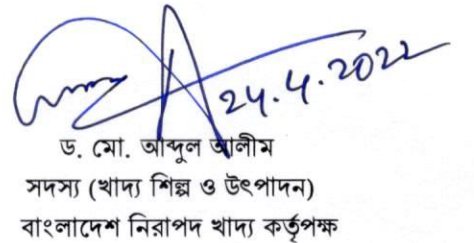 24.4.2022
ড. মো. আব্দুল আলীম
সদস্য (খাদ্য শিল্প ও উৎপাদন)
বাংলাদেশ নিরাপদ খাদ্য কর্তৃপক্ষ